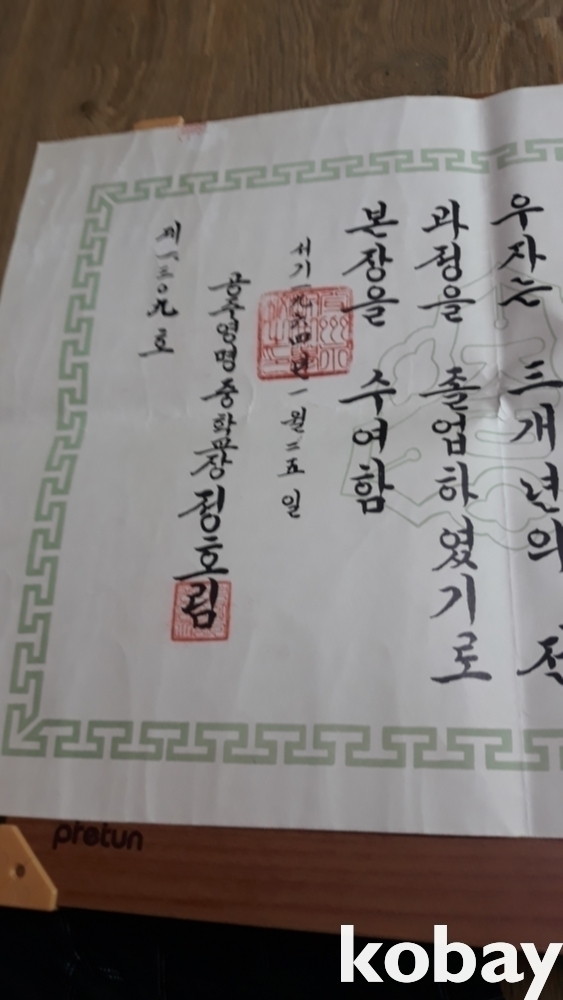 우자는 삼개년의 전
과정을 졸업하였기로
본장을 수여함
서기一九六四년一월二五일
공주영명중학교장 정호림
제一三〇九호
pretun
kobay